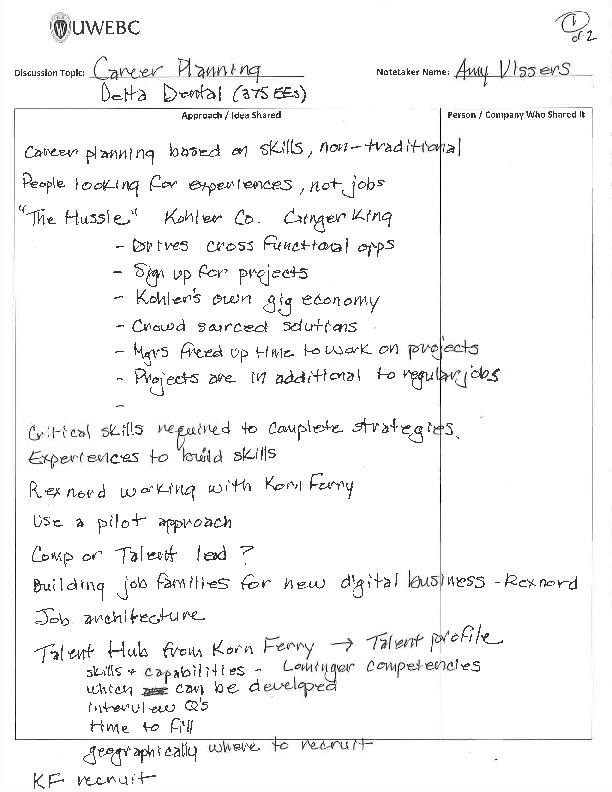 UWEBC
1 of 2
Discussion Topic: Career Planning
Notetaker Name: Amy Vissers
Delta Dental (375 EEs)
Approach / Idea Shared
Person / Company Who Shared It
Career planning based on skills, non-traditional
People looking for experiences, not jobs
"The Hussle" Kohler Co. Ginger King
- Drives cross functional opps
- Sign up for projects
- Kohler's own gig economy
- Crowd sourced solutions
- Mgrs freed up time to work on projects
- Projects are in additional to regular jobs
-
Critical skills required to complete strategies.
Experiences to build skills
Rexnord working with Korn Ferry
Use a pilot approach
Comp or Talent lead?
Building job families for new digital business - Rexnord
Job architecture
Talent Hub from Korn Ferry → Talent profile
skills + capabilities - Lominger competencies
which can be developed
interview Q's
time to fill
geographically where to recruit
KF recruit